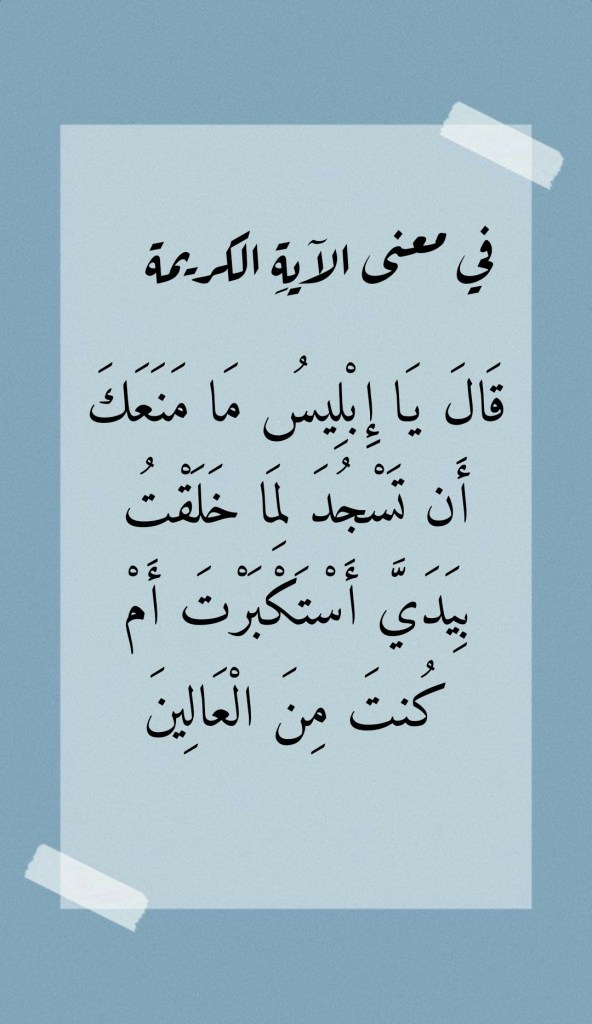 في معنى الآيةِ الكريمة
قَالَ يَا إِبْلِيسُ مَا مَنَعَكَ
أَن تَسْجُدَ لِمَا خَلَقْتُ
بِيَدَيَّ أَسْتَكْبَرْتَ أَمْ
كُنتَ مِنَ الْعَالِينَ